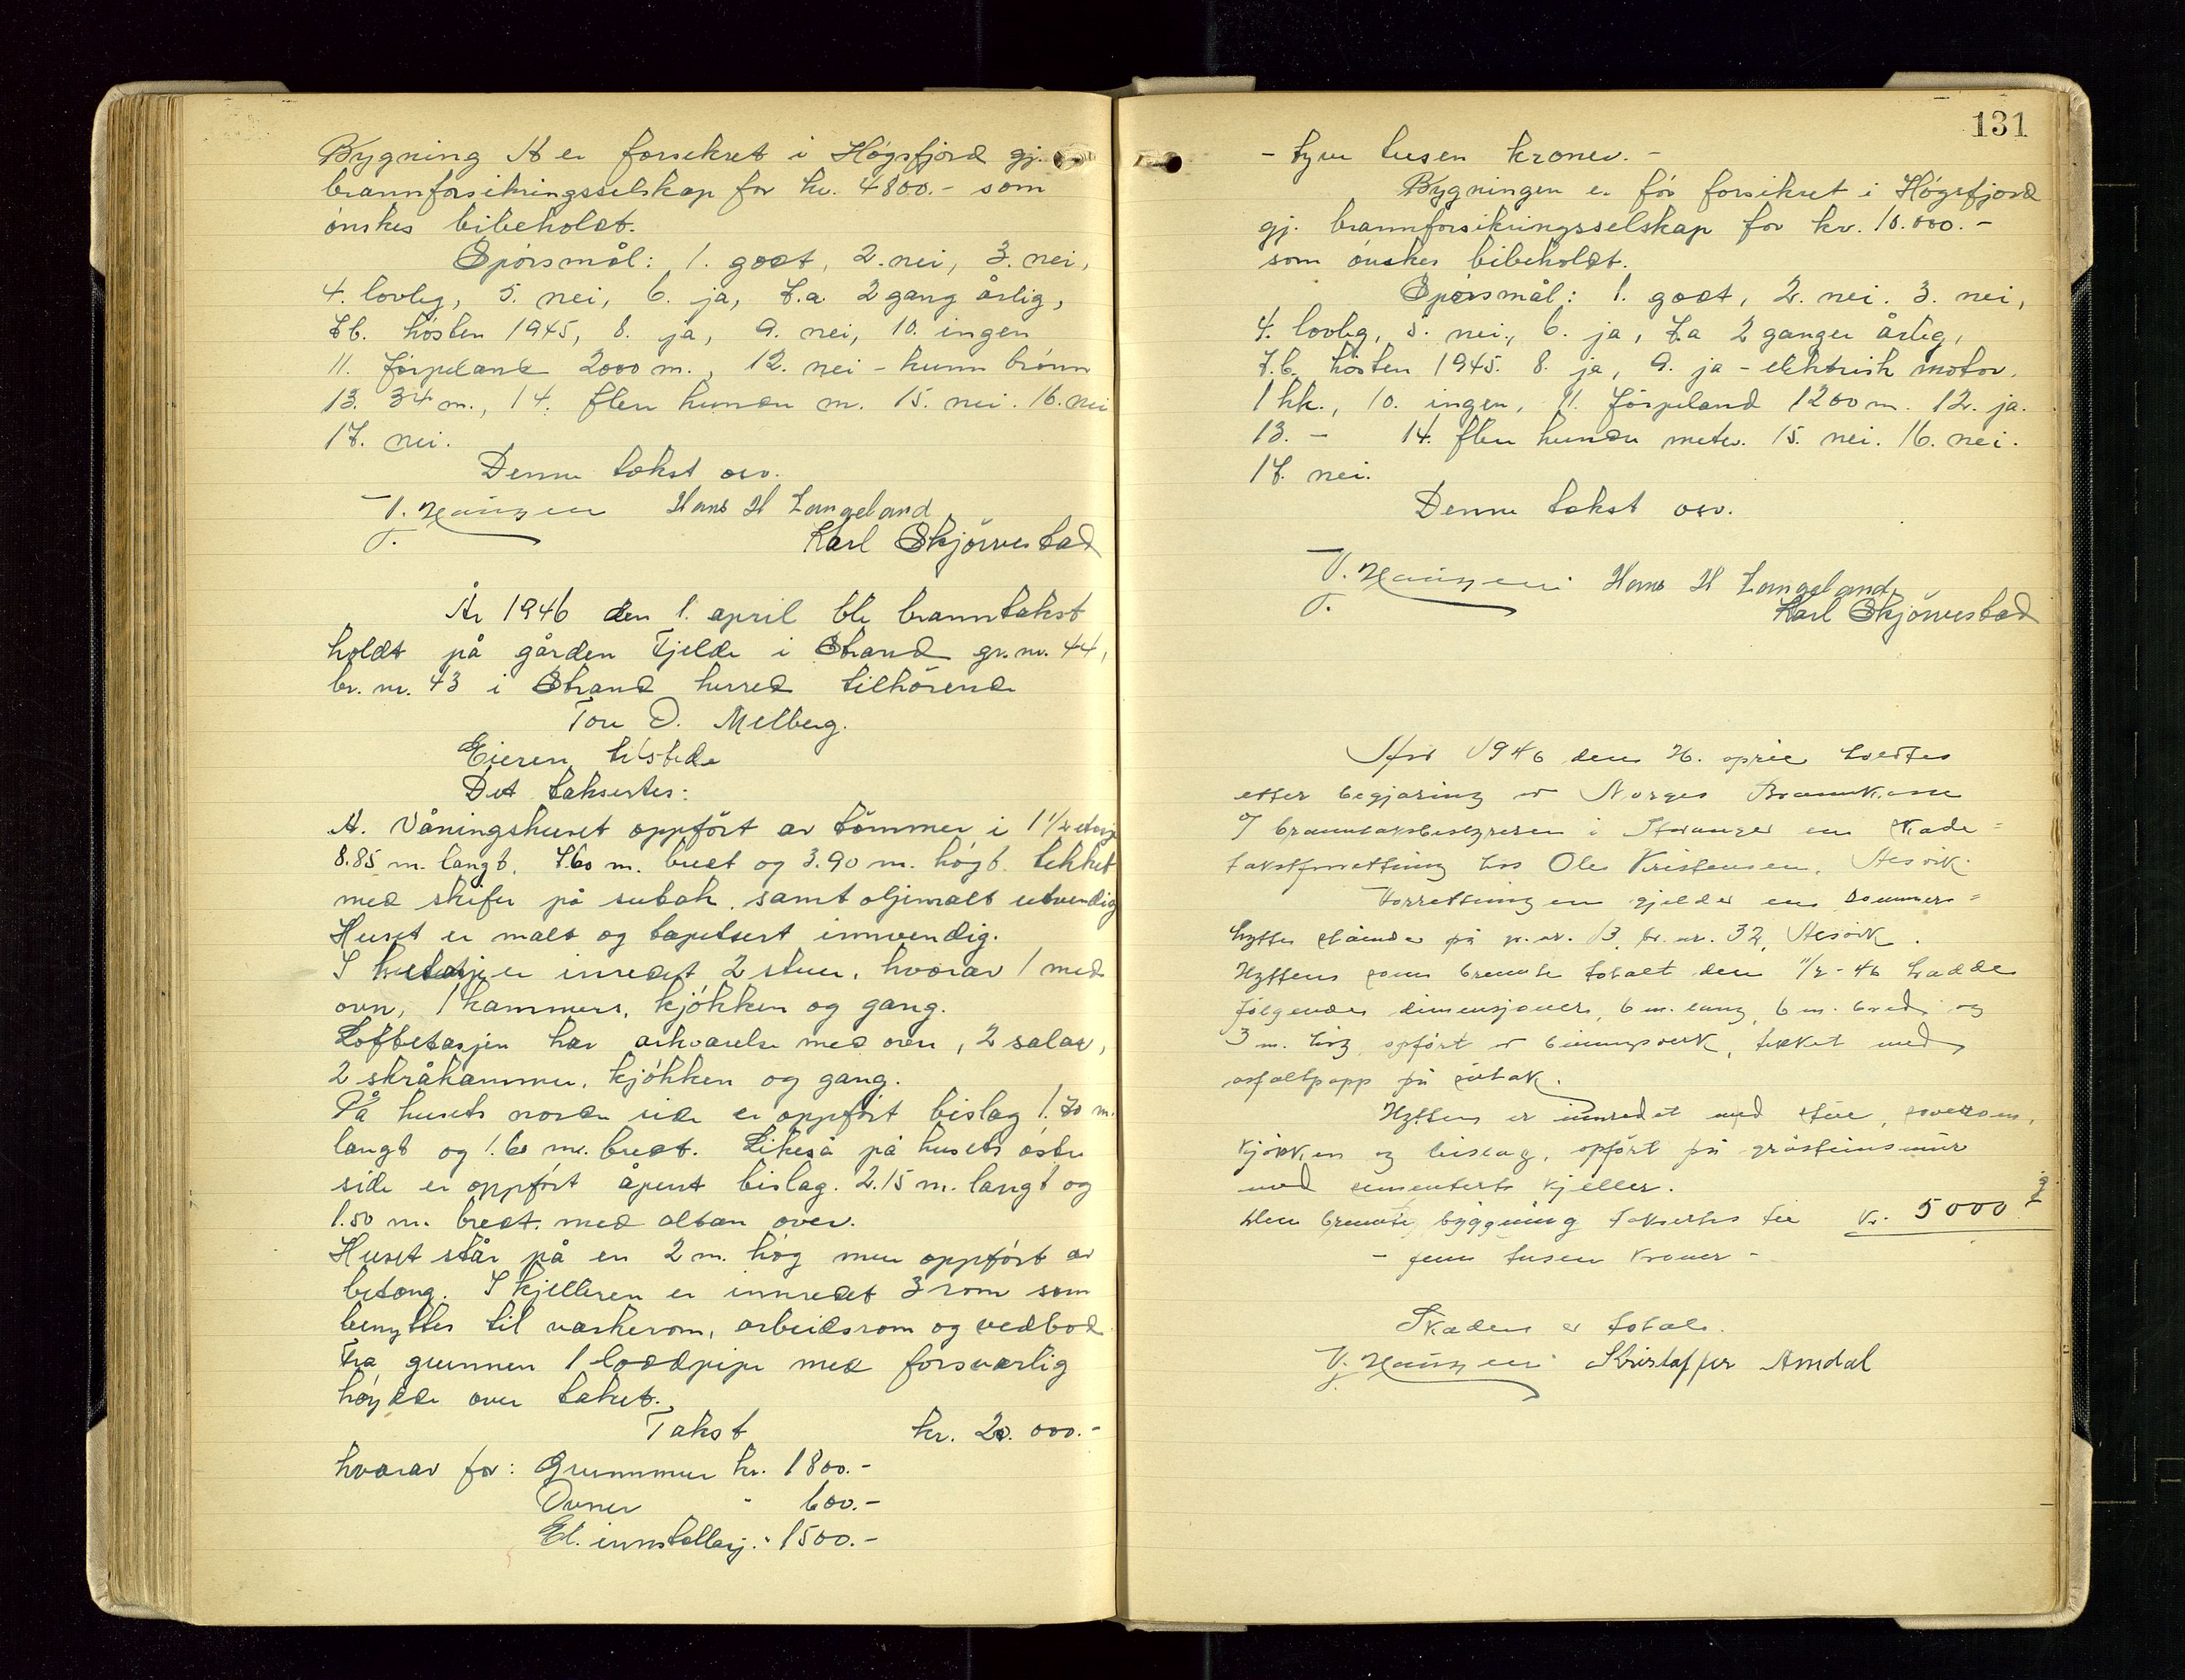 Bygning A er forsikret i Høgsfjord gj.
brannforsikringsselskap for kr. 4800.- som
ønskes bibeholdt.
Spørsmål: 1. godt, 2. nei, 3. nei,
4. lovlig, 5. nei, 6. ja, 7.a. 2 gang årlig,
7b. høsten 1945, 8. ja, 9. nei, 10. ingen
11. Jørpeland 2000 m., 12. nei - kunn brønn
13. 34 m., 14. flere hundre m. 15. nei. 16. nei
17. nei.
Denne takst osv.
Hans H Langeland
Karl Skjørvestad
År 1946 den 1. april ble branntakst
holdt på gården Fjelde i Strand gr. nr. 44,
br. nr. 43 i Strand herred tilhørende
Tore O. Melberg.
Eieren tilstede
Det taksertes:
A. Våningshuset oppført av tømmer i 1 1/2 etasje
8.85 m. langt, 7.60 m. bredt og 3.90 m. høgt. tekket
med skifer på sutak, samt oljemalt utvendig
Huset er malt og tapetsert innvendig.
I er inredet 2 stuer, hvorav 1 med
ovn, 1 kammers, kjøkken og gang.
Loftetasjen har arkværelse med ovn, 2 salar,
2 skråkammer, kjøkken og gang.
På husets nordre side er oppført bislag 1.70 m.
langt og 1.60 m. bredt. Likeså på husets østre
side er oppført åpent bislag. 2.15 m. langt og
1.50 m. bredt. med altan over.
Huset står på en 2 m. høg mur oppført av
betong. I kjelleren er innredet 3 rom som
benyttes til vaskerom, arbeidsrom og vedbod
Fra grunnen 1 loddpipe med forsvarlig
høyde over taket.
Takst kr. 20.000.-
hvorav for: Grunnmur kr. 1800.-
Ovner " 600.-
El. innstallasj. " 1500.-
131
- tyve tusen kroner. -
Bygningen er før forsikret i Høgsfjord
gj. brannforsikringsselskap for kr. 10.000.-
som ønskes bibeholdt.
Spørsmål: 1. godt, 2. nei. 3. nei,
4. lovlig, 5. nei, 6. ja, 7.a 2 ganger årlig,
7.b. høsten 1945. 8. ja, 9. ja - elektrisk motor.
1 hk., 10. ingen, 11. Jørpeland 1200 m. 12. ja.
13. - 14. flere hundre meter. 15. nei. 16. nei.
17. nei.
Denne takst osv.
Hans H Langeland
Karl Skjørvestad
År 1946 den 26. april holdtes
etter begjæring av Norges Brannkasse
v/ branntakstbestyreren i Stavanger en skade=
takstforretning hos Ole Kristensen,
Forretningen gjelder en sommer=
hytte stående på gr. nr. 13, br. nr. 32,
Hyttens som brennte totalt den 11/2 - 46 hadde
følgende dimensjoner, 6 m. lang, 6 m. bred og
3 m. høg, opført av binningsverk, tekket med
asfaltpapp på sutak.
Hytten er innredet med stue, soverom,
kjøkken og bislag, opført på gråsteinsmur
med sementerte kjeller.
Den brennte byggning takseres til kr. 5000.-
- fem tusen kroner -
Skaden er total.
Kristoffer Amdal